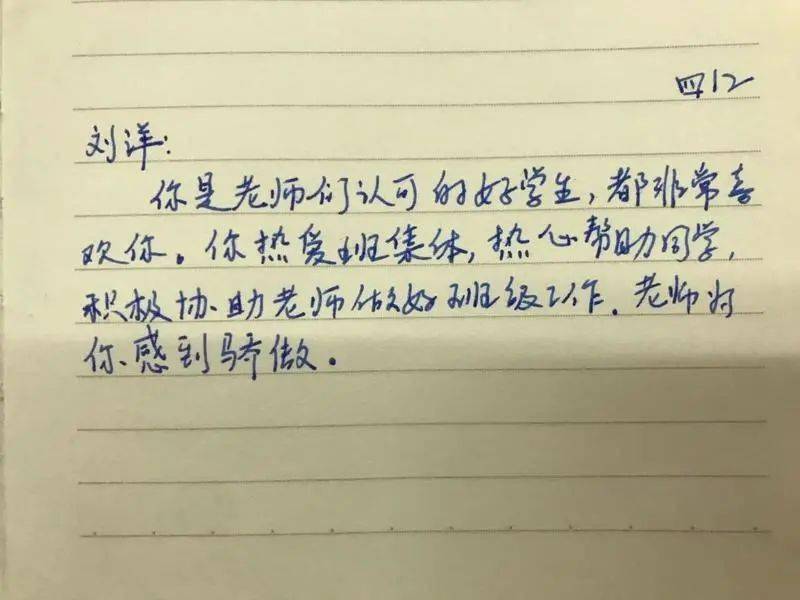 四12
刘洋:
你是老师们认可的好学生,都非常喜
欢你。你热爱班集体,热心帮助同学,
积极协助老师做好班级工作.老师为
你感到骄傲。